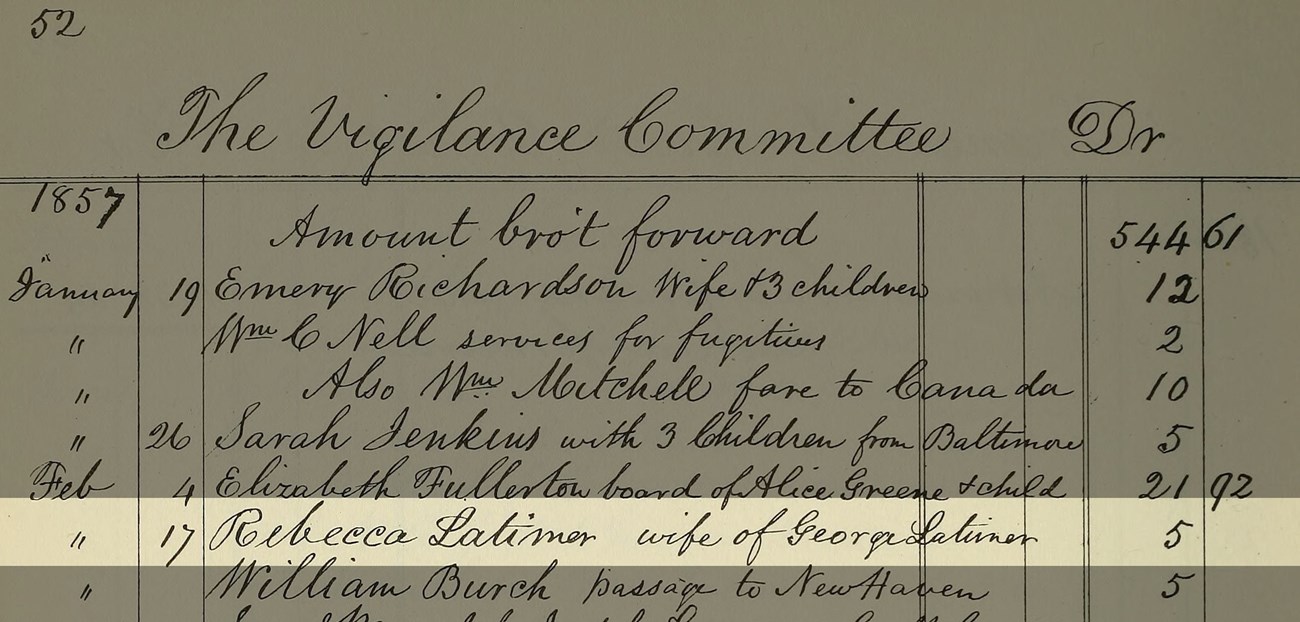 52
The Vigilance Committee Dr
1857
Amount bro't forward 544 61
January 19 Emery Richardson Wife & 3 children 12
" Wm C Nell services for fugitives 2
" Also Wm Mitchell fare to Canada 10
" 26 Sarah Jenkins with 3 Children from Baltimore 5
Feb 4 Elizabeth Fullerton board of Alice Greene & child 21 92
" 17 Rebecca Latimer wife of George Latimer 5
" William Burch passage to New Haven 5